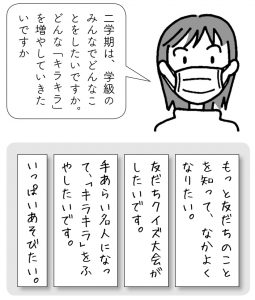 二学期は、学級の
みんなでどんなこ
とをしたいですか。
どんな「キラキラ」
を増やしていきた
いですか
もっと友だちのこと
を知って、なかよく
なりたい。
友だちクイズ大会が
したいです。
手あらい名人になっ
て、「キラキラ」をふ
やしたいです。
いっぱいあそびたい。